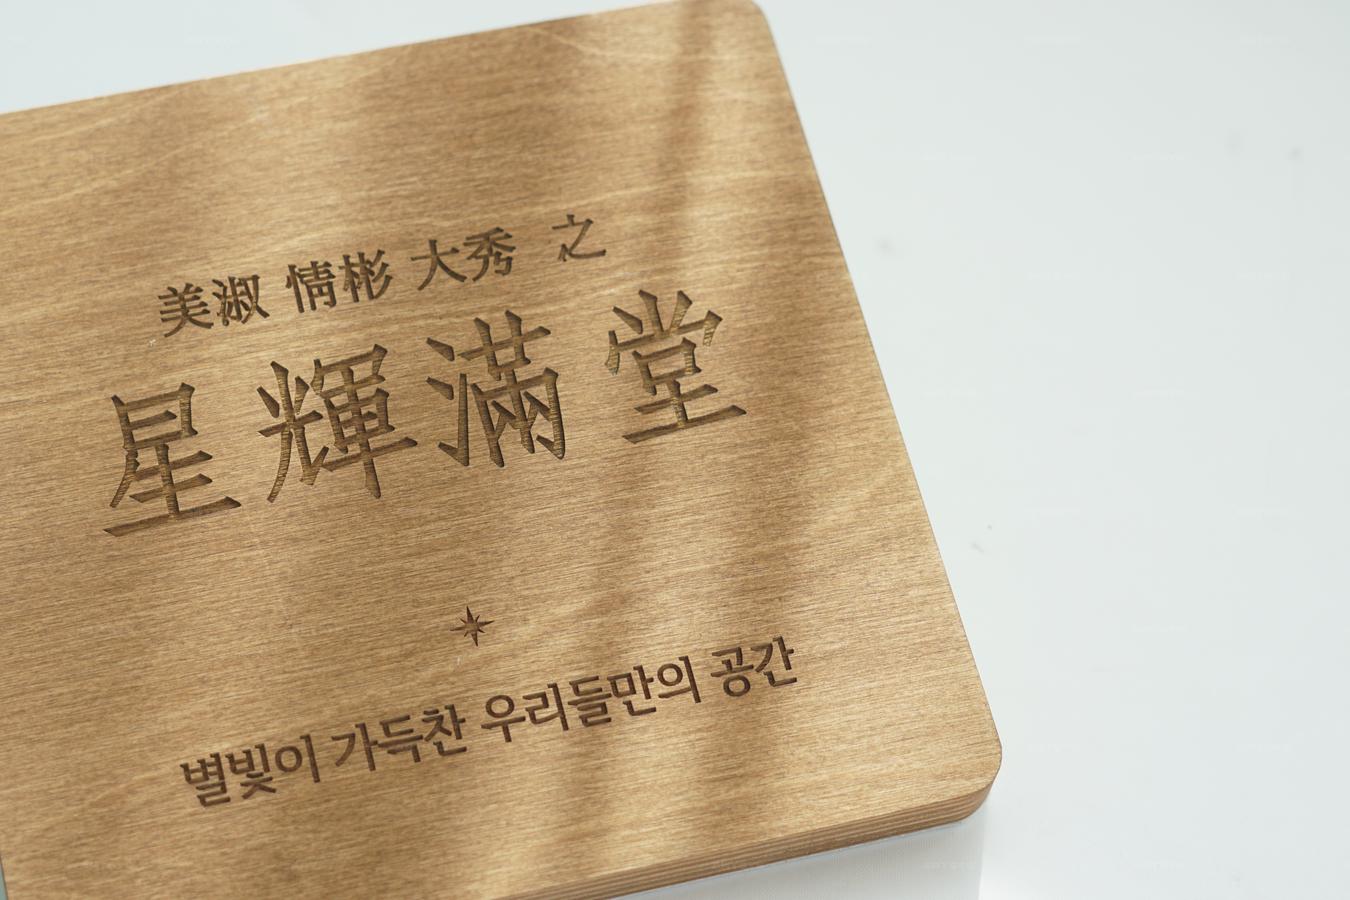 美淑 情彬 大秀 之
星輝滿堂
별빛이 가득찬 우리들만의 공간